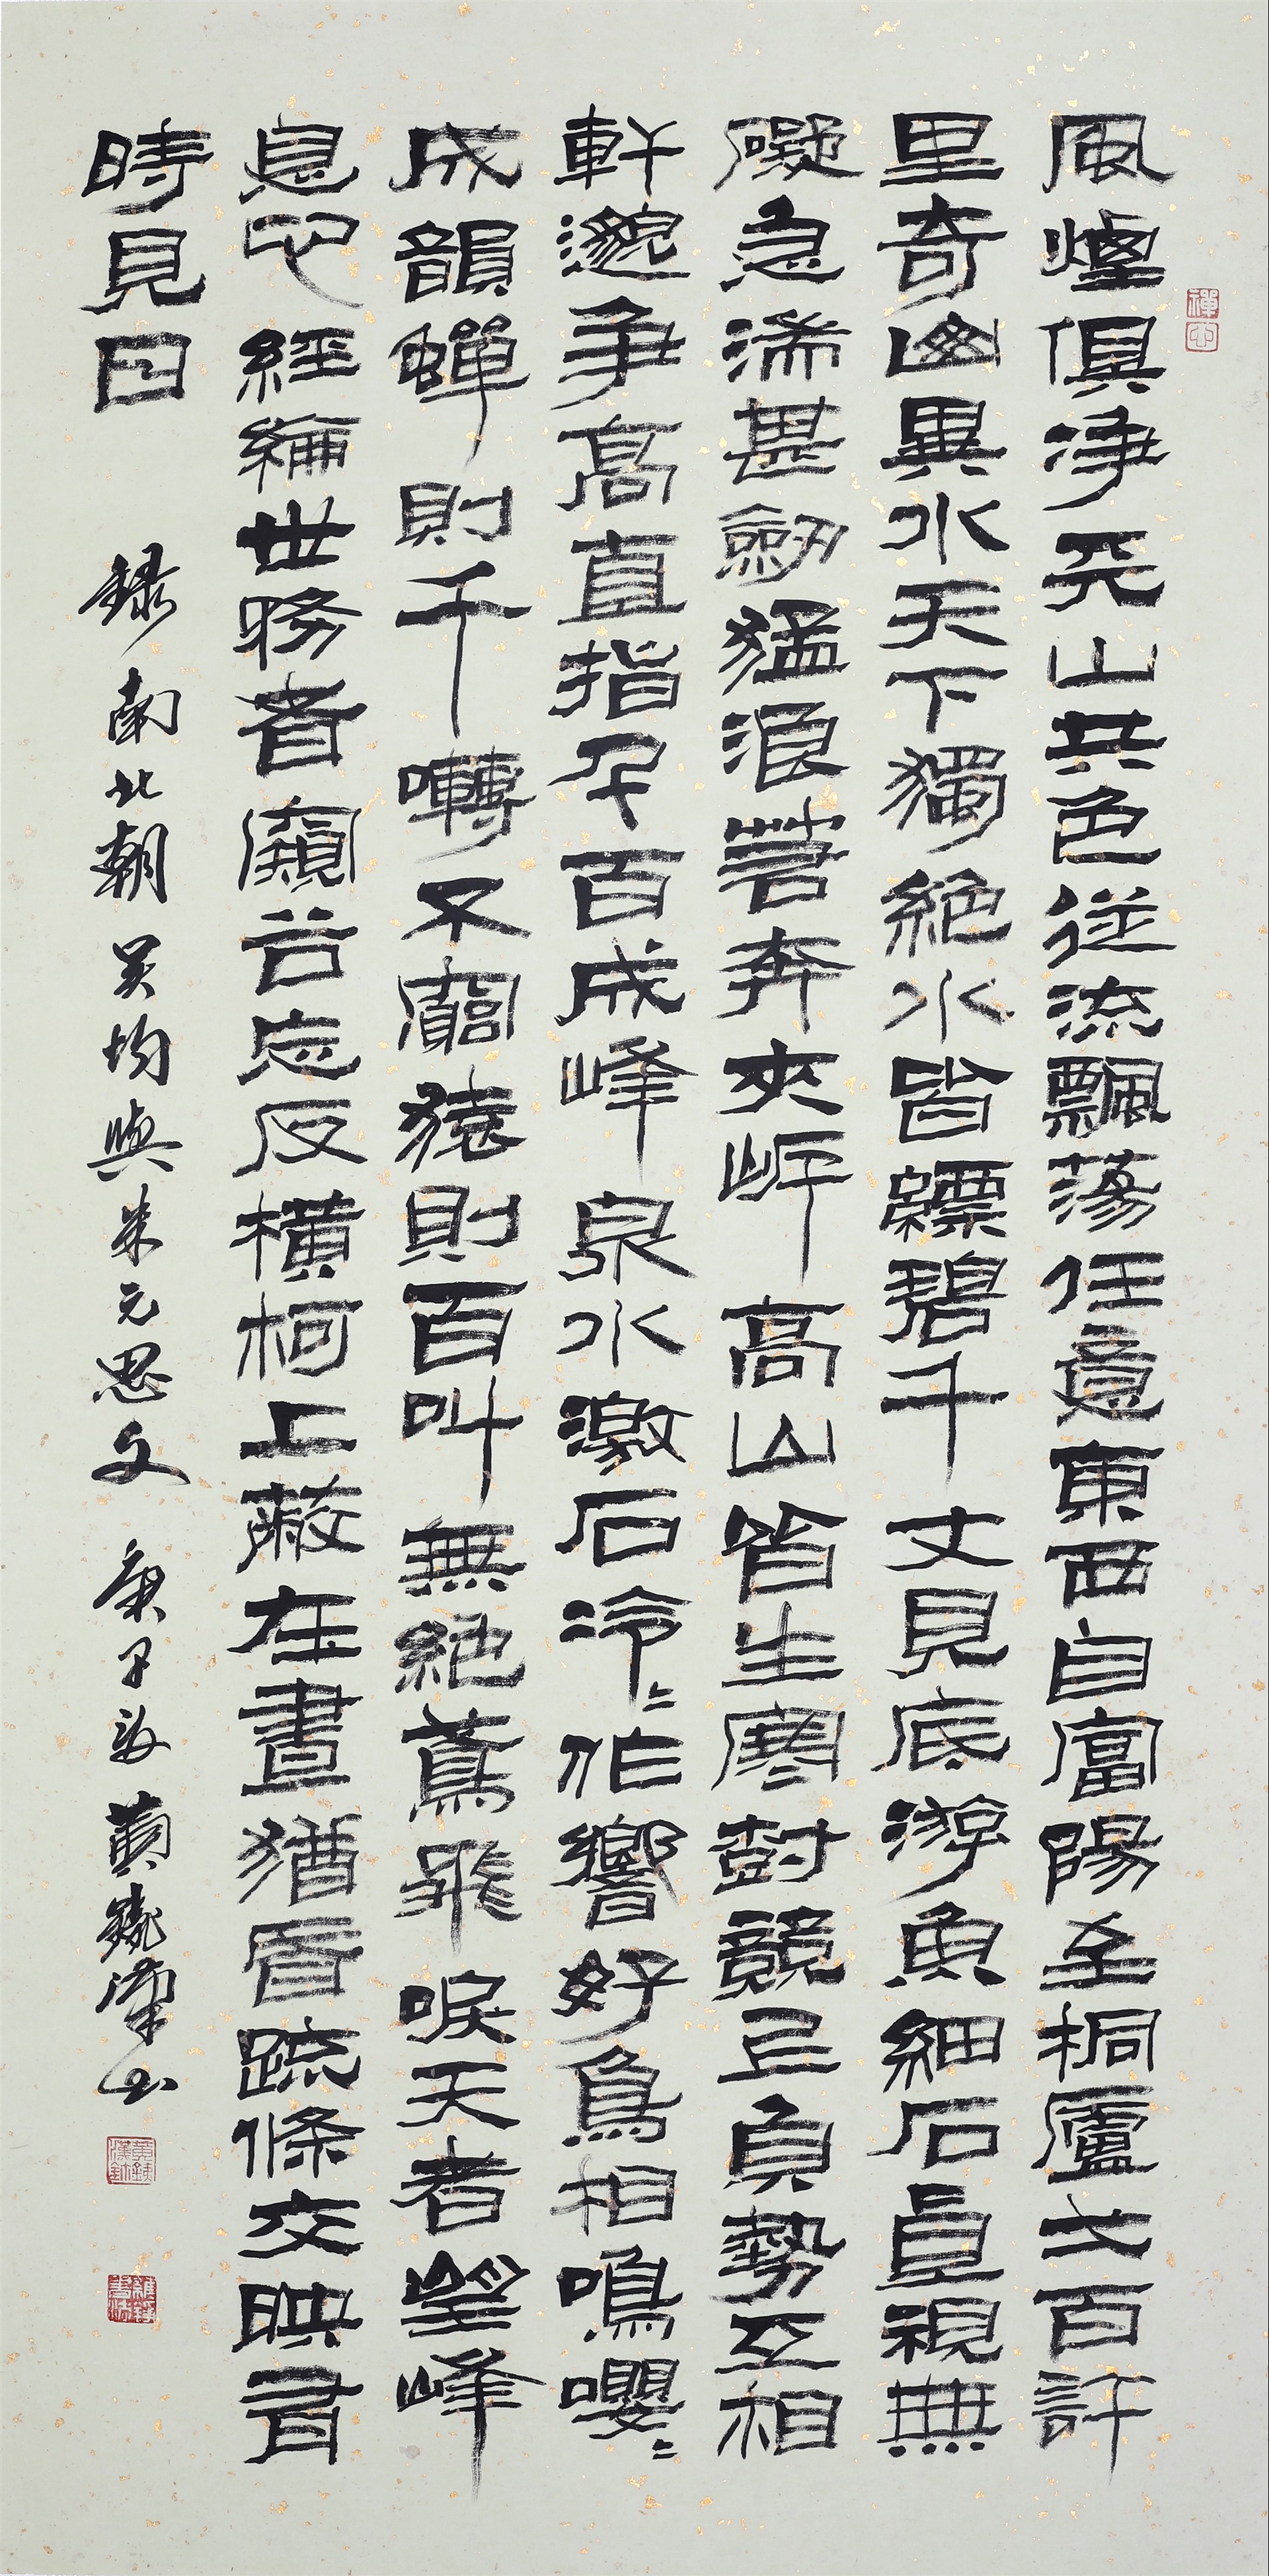 風煙俱淨天山共色從流飄蕩任意東西自富陽至桐廬一百許
里奇山異水天下獨絕水皆縹碧千丈見底游魚細石直視無
礙急湍甚箭猛浪若奔夾岸高山皆生寒樹競上負勢互相
軒邈爭高直指千百成峰泉水激石泠〻作響好鳥相鳴嚶〻
成韻蟬則千囀不窮猿則百叫無絕鳶飛唳天者望峰
息心經綸世務者窺谷忘反橫柯上蔽在晝猶昏疏條交映有
時見日
錄南北朝吳均與朱元思文 庚子 黃鐵漢書